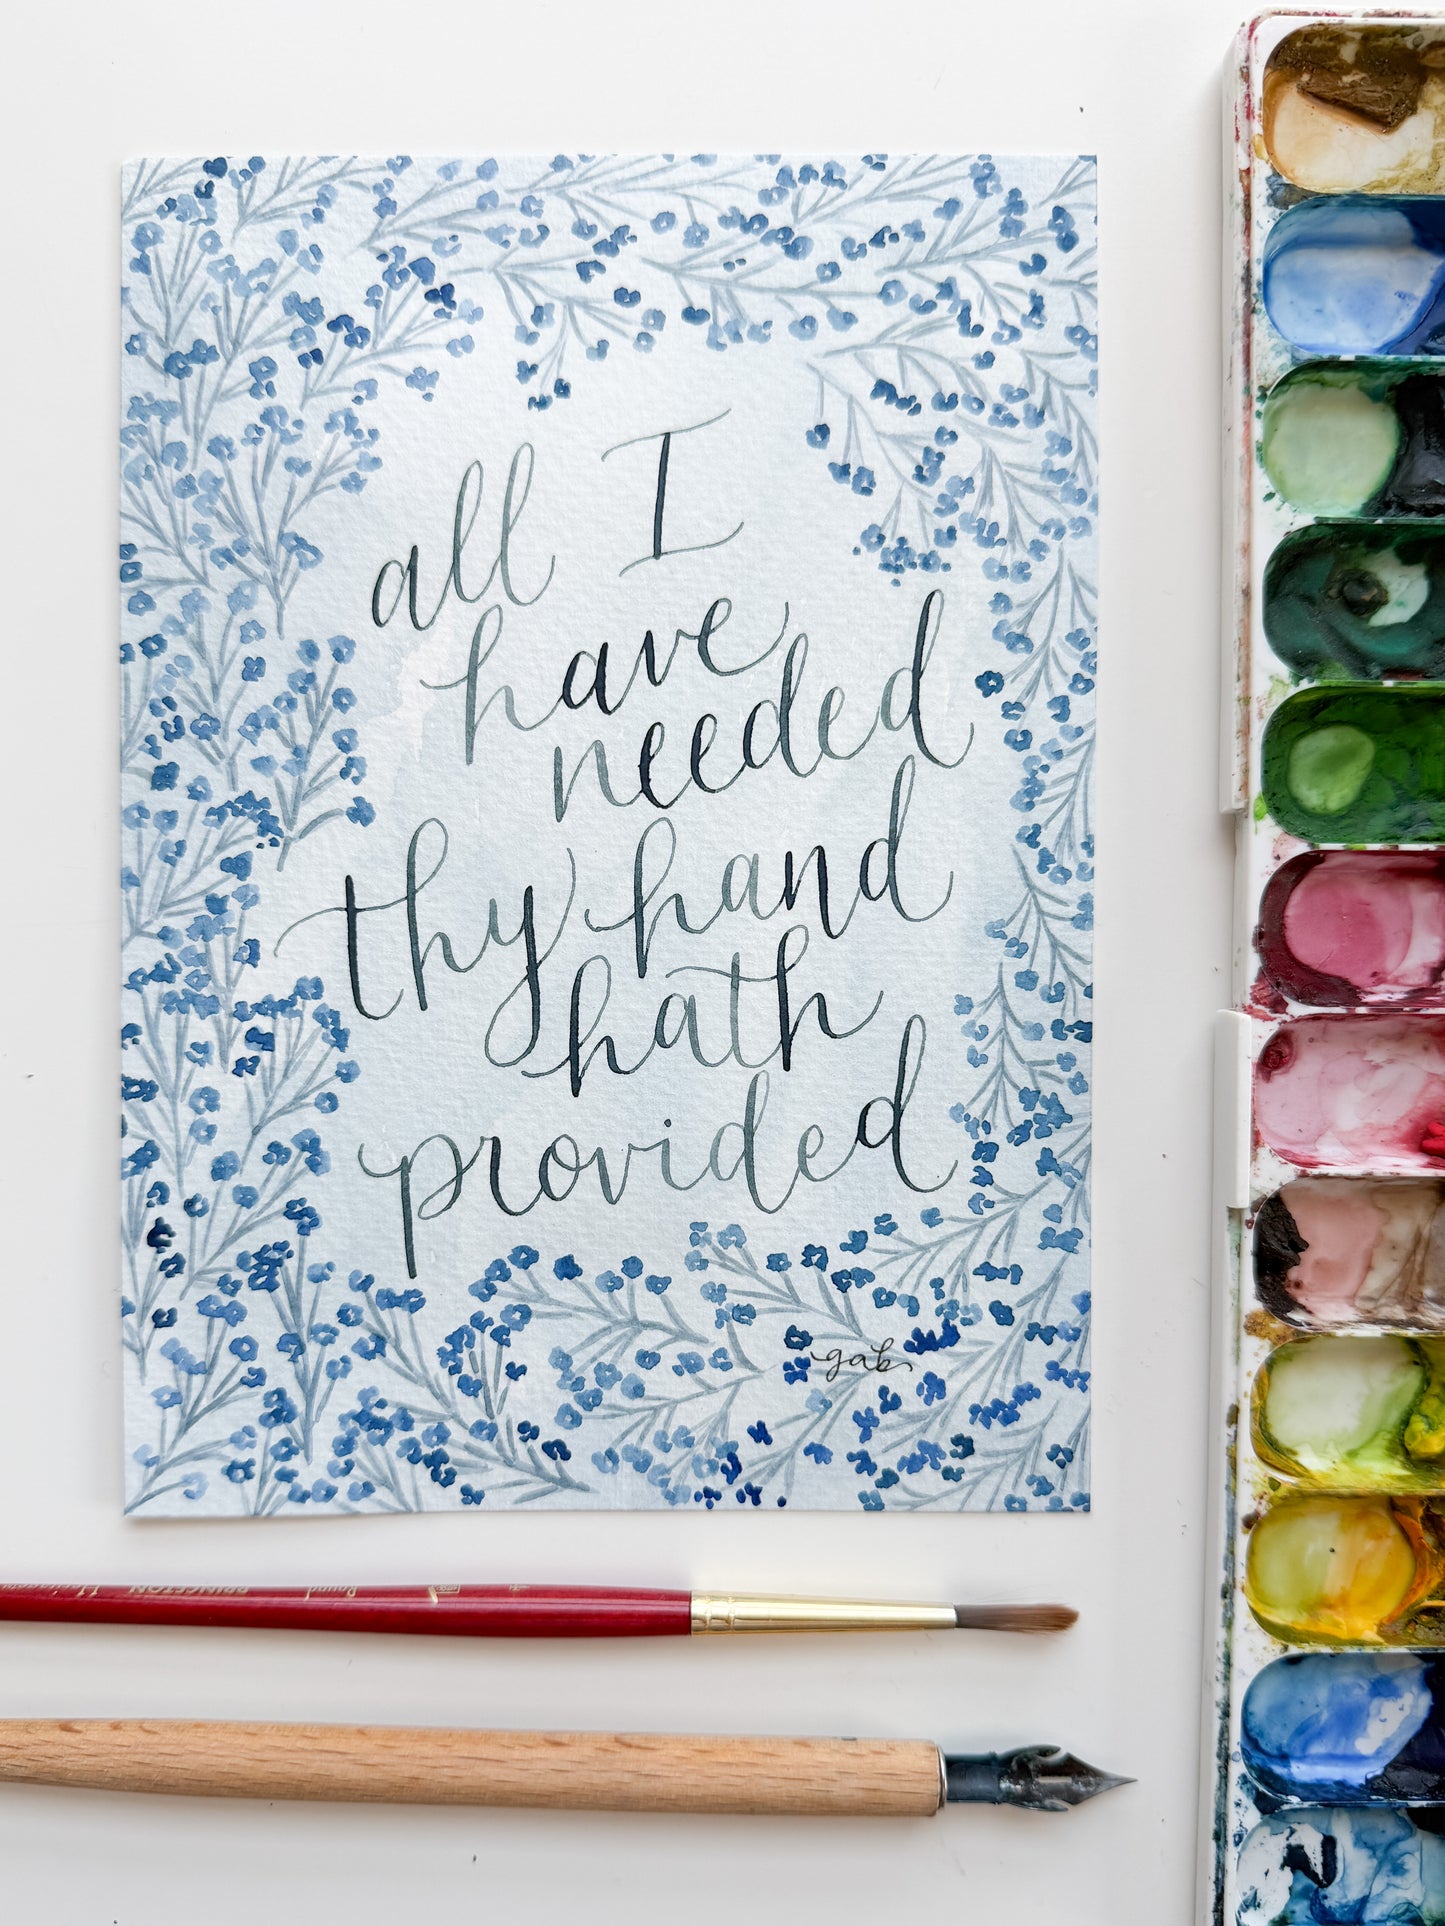 all I
have
needed
thy hand
hath
provided
gab
Round PRINCETON